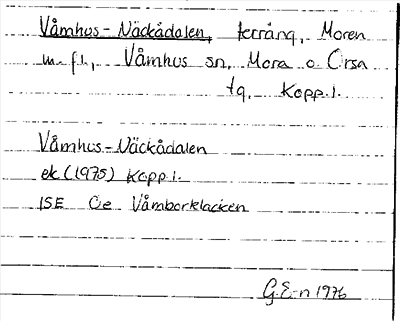 Våmhus-Näckådalen, terräng, Moren
m.fl., Våmhus sn, Mora o. Orsa
tg, Kopp.l.
Våmhus-Näckådalen
ek (1975) Kopp l.
ISE Oe Våmborklacken
G.E-n 1976